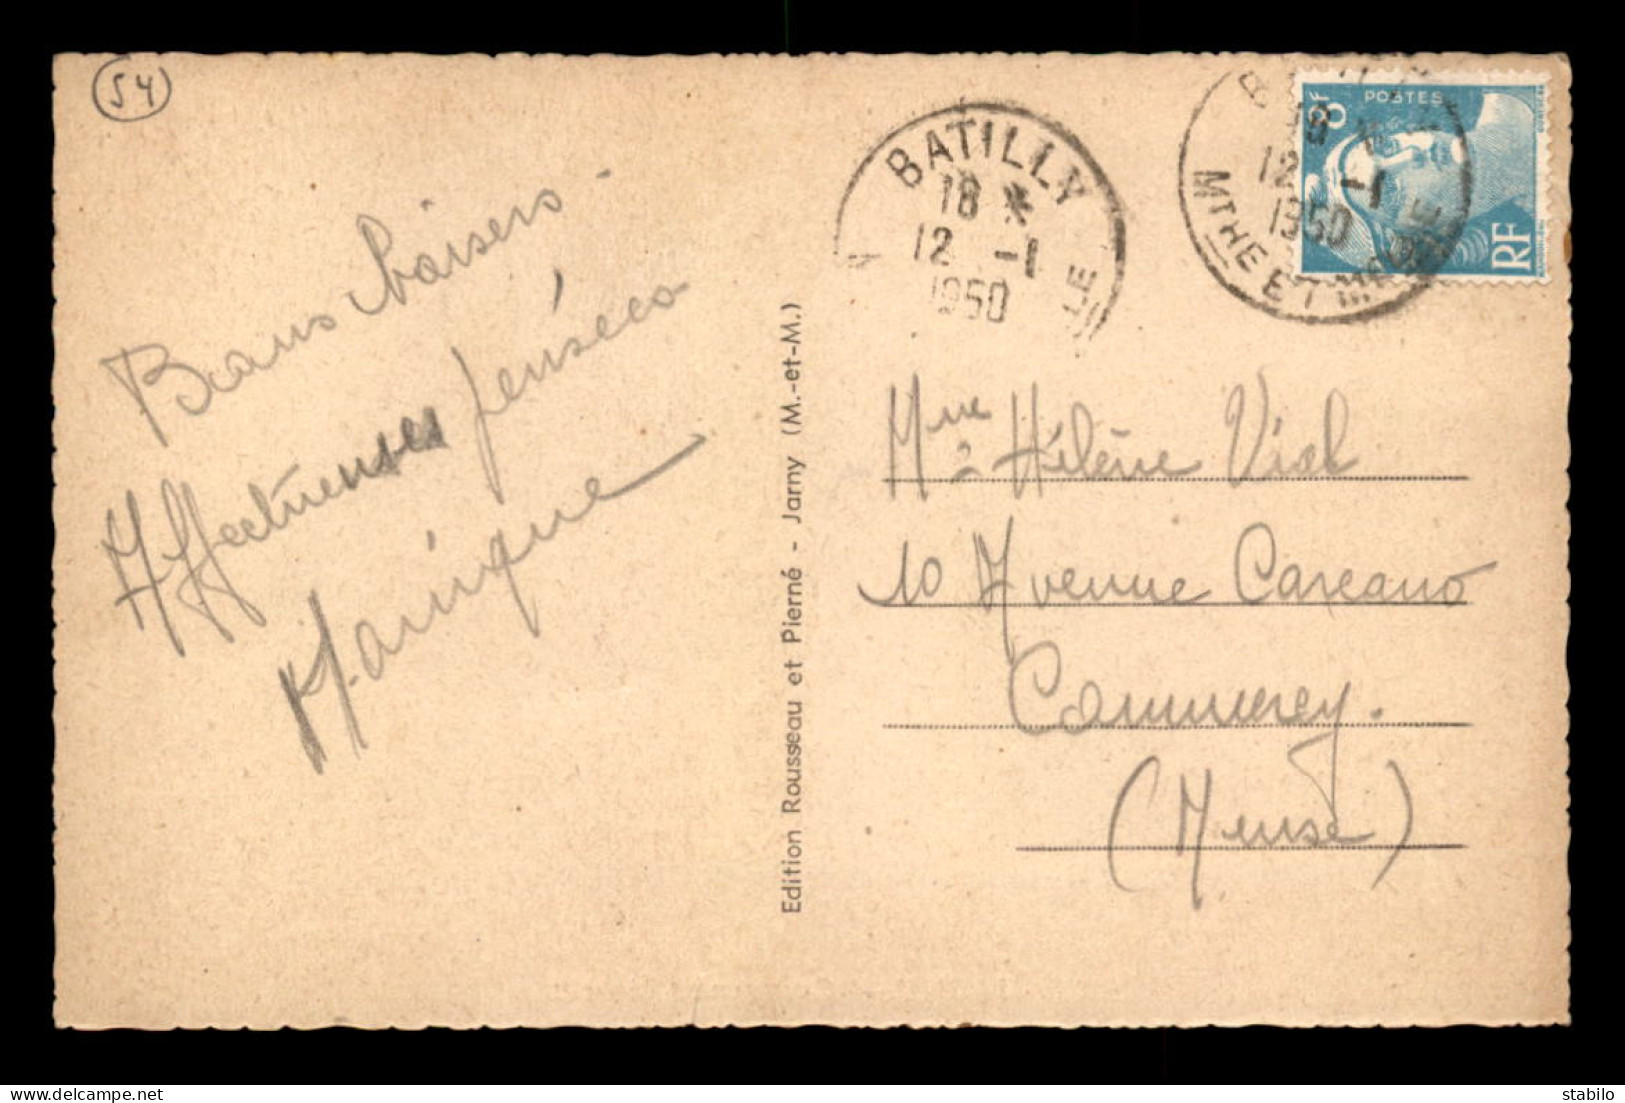 54
Bons baisers -
Affectueuses pensées
Manique
Edition Rousseau et Pierné - Jarny (M.-et-M.)
BATILLY
18 *
12 -1
1950
LE
18 *
12 -1
1950
MTHE ET M
POSTES
8F
RF
Mme Hélène Vial
10 Avenue Carcano
Commercy.
(Meuse)
delcampe.net
stanislo